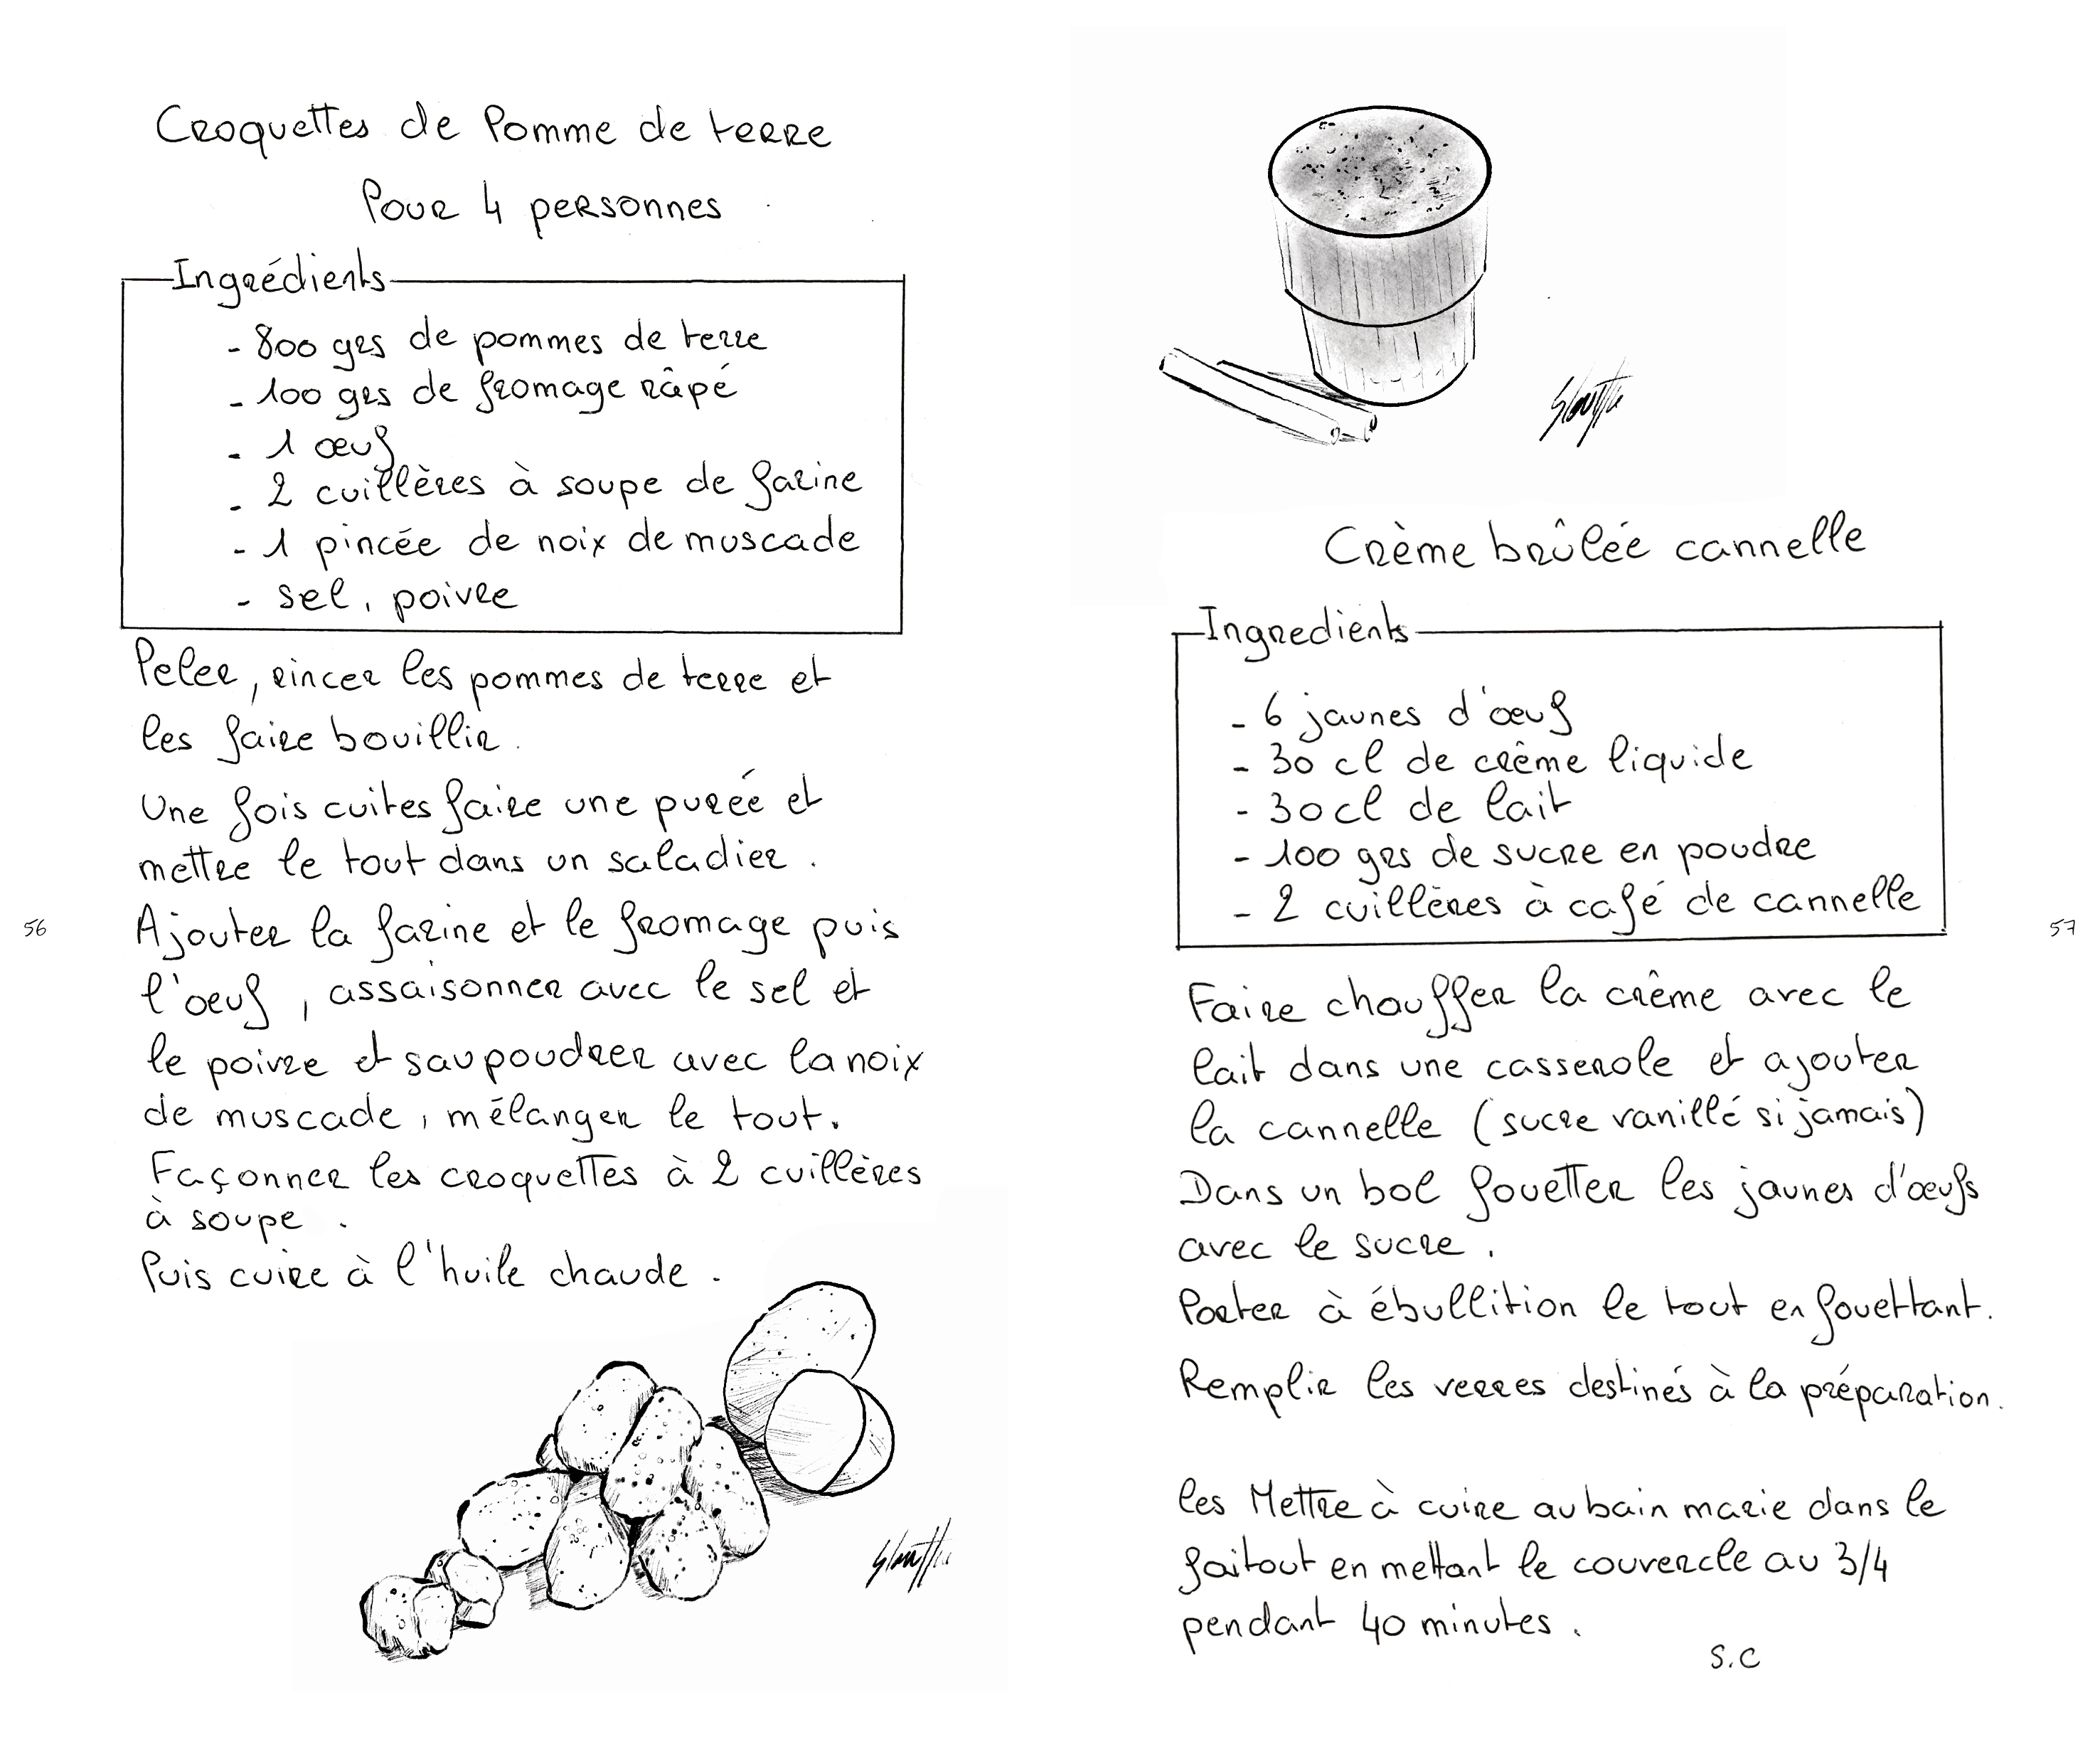 Croquettes de Pomme de terre
Pour 4 personnes
Ingrédients
- 800 grs de pommes de terre
- 100 grs de fromage râpé
- 1 œuf
- 2 cuillères à soupe de farine
- 1 pincée de noix de muscade
- sel, poivre
Peler, rincer les pommes de terre et
les faire bouillir.
Une fois cuites faire une purée et
mettre le tout dans un saladier.
Ajouter la farine et le fromage puis
l'oeuf, assaisonner avec le sel et
le poivre et saupoudrer avec la noix
de muscade, mélanger le tout.
Façonner les croquettes à 2 cuillères
à soupe.
Puis cuire à l'huile chaude.
56
Crème brûlée cannelle
Ingredients
- 6 jaunes d'œuf
- 30 cl de crème liquide
- 30 cl de lait
- 100 grs de sucre en poudre
- 2 cuillères à café de cannelle
Faire chauffer la crême avec le
lait dans une casserole et ajouter
la cannelle (sucre vanillé si jamais)
Dans un bol fouetter les jaunes d'œufs
avec le sucre.
Porter à ébullition le tout en fouettant.
Remplir les verres destinés à la préparation.
les Mettre à cuire au bain marie dans le
faitout en mettant le couvercle au 3/4
pendant 40 minutes.
S.C
57